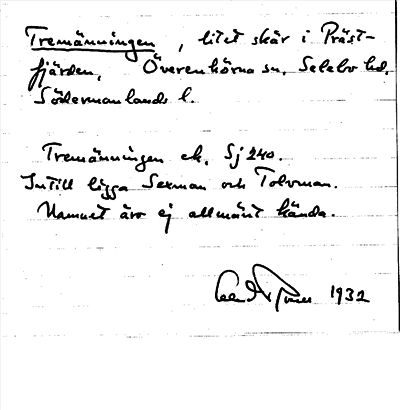 Tremänningen, litet skär i Präst-
fjärden, Överenhörna sn, Selebo hd,
Södermanlands l.
Tremänningen ek. Sj 240.
Intill ligga Sexman och Tolvman.
Namnet äro ej allmänt kända.
1932